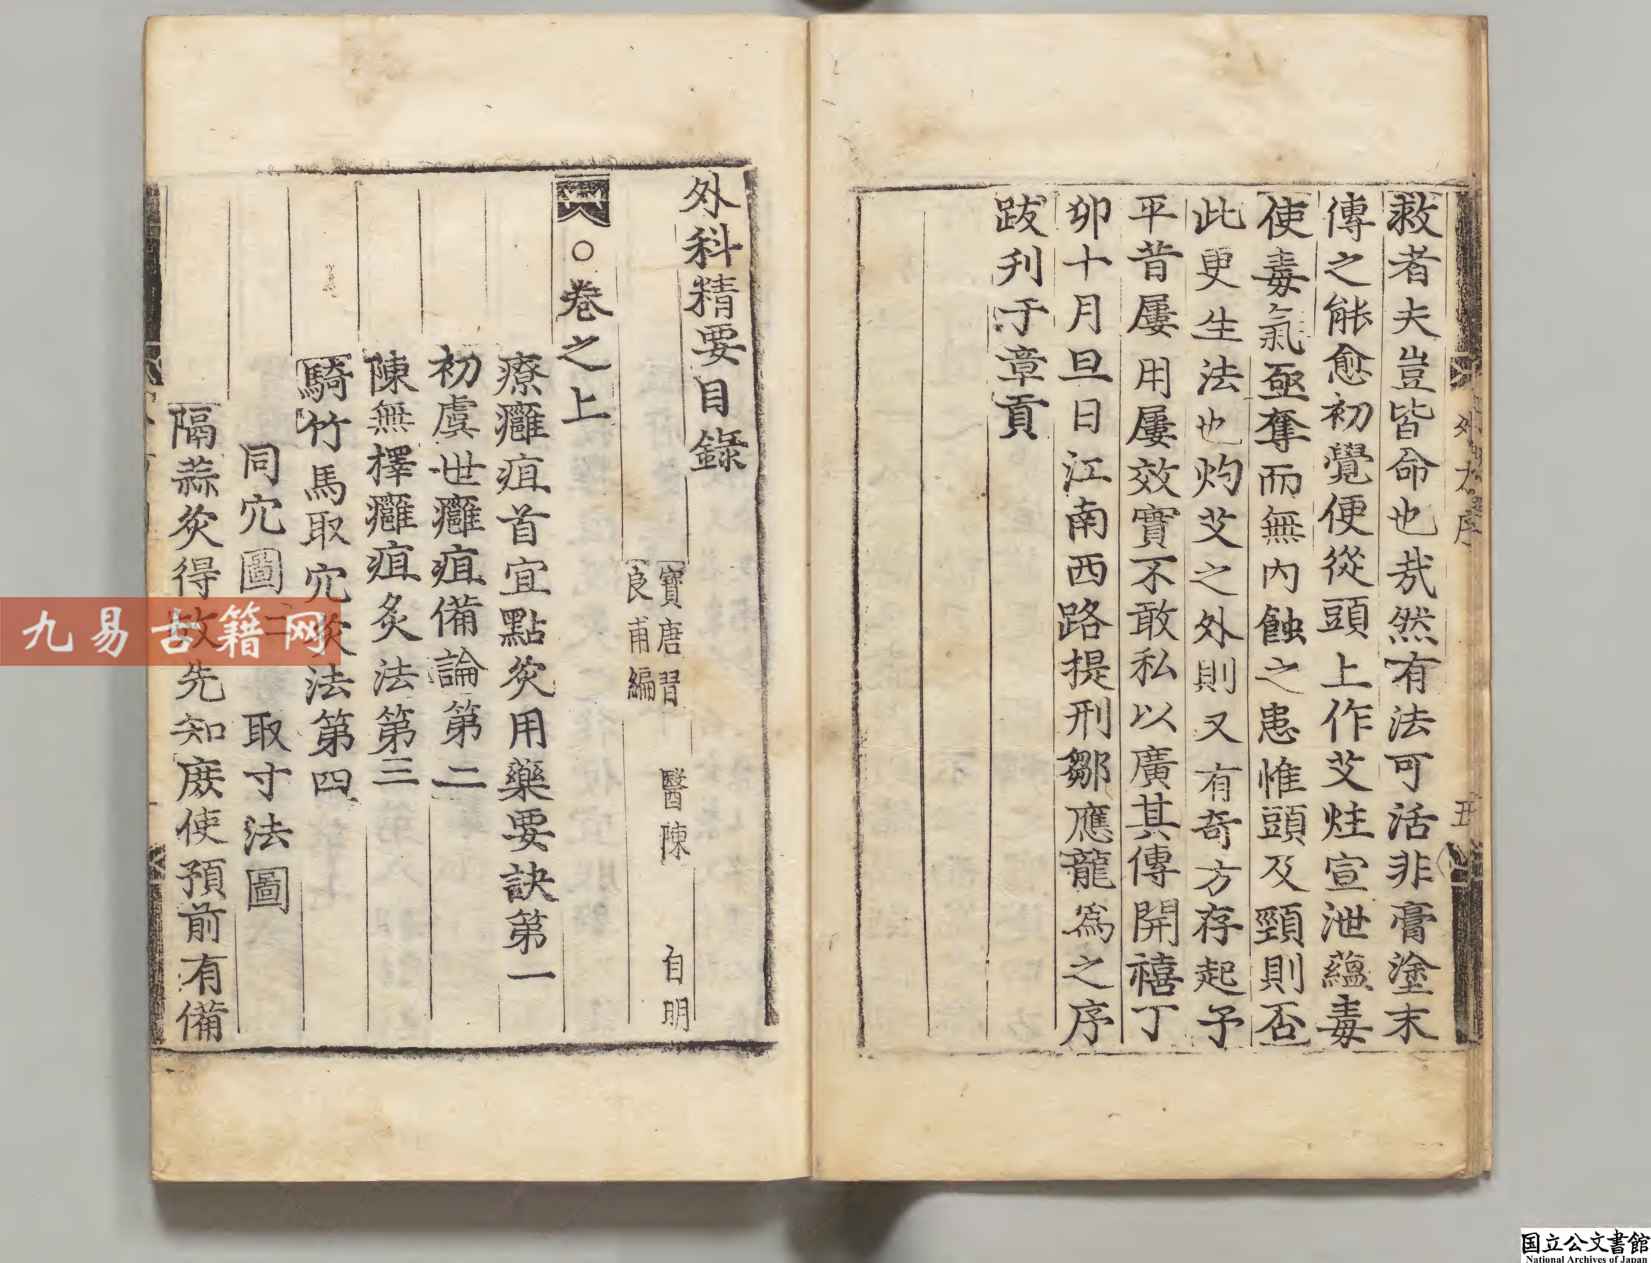 救者夫豈皆命也㢤然有法可活非膏塗末
傳之能愈初覺便從頭上作艾炷宣泄蘊毒
使毒氣亟奪而無内蝕之患惟頭及頸則否
此更生法也灼艾之外則又有奇方存起予
平昔屢用屢效實不敢私以廣其傳開禧丁
卯十月旦日江南西路提刑鄒應龍為之序
跋刋于章貢
外科精要目錄
寶唐習醫陳自明
良甫編
○卷之上
療癰疽首宜點灸用藥要訣第一
初虞世癰疽備論第二
陳無擇癰疽灸法第三
騎竹馬取穴灸法第四
同穴圖二 取寸法圖
隔蒜灸得效先知庻使預前有備
九易古籍网
国立公文書館
National Archives of Japan